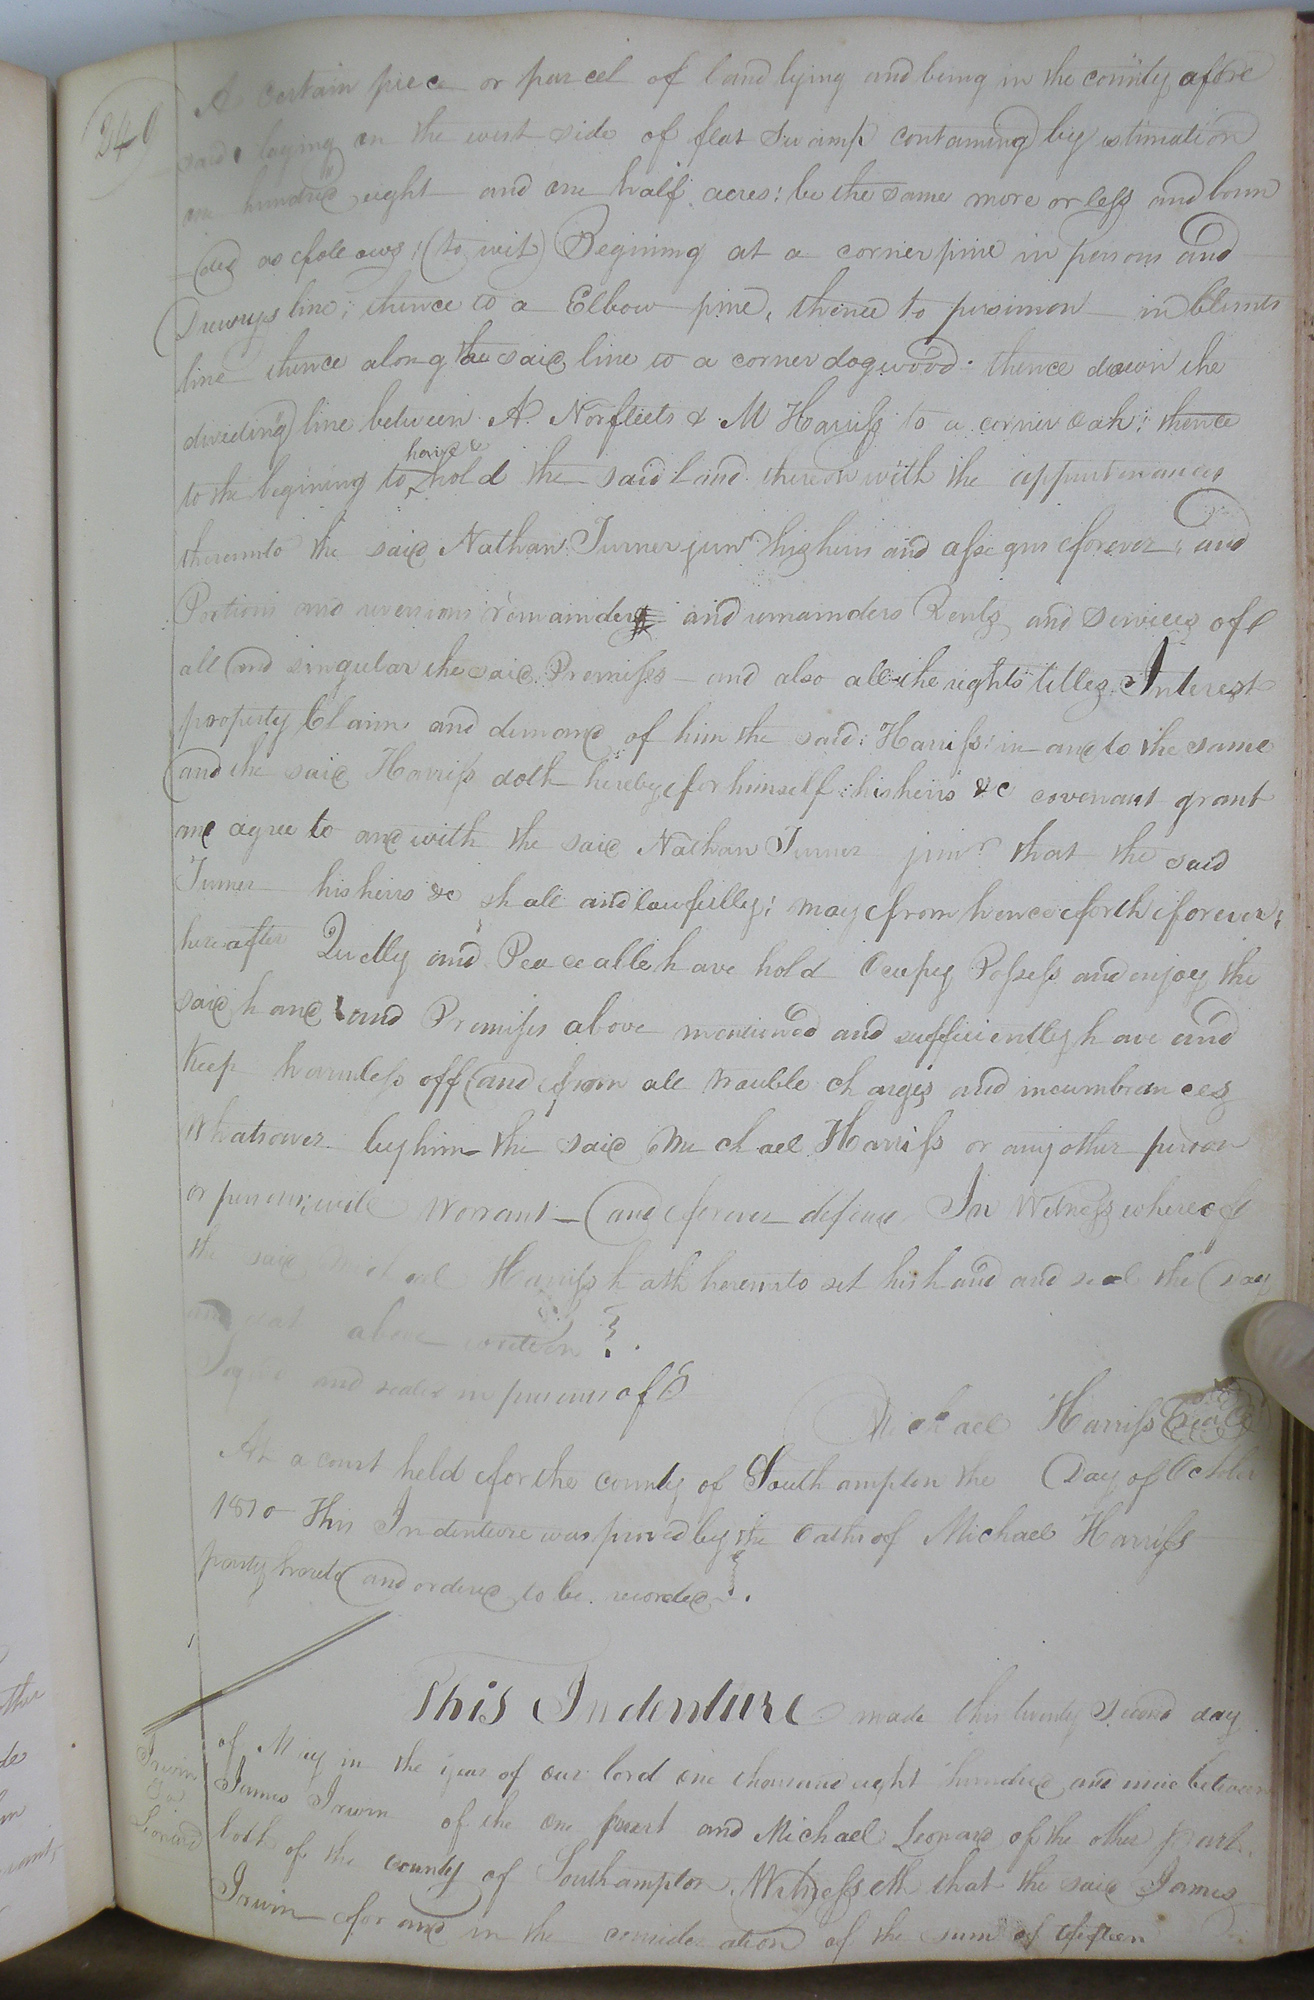 249
A certain piece or parcel of land lying and being in the county afore
said, laying on the west side of flat Swamp containing by estimation
one hundred eight and one half acres: be the same more or less and boun
ded as follows; (to wit) Begining at a corner pine in persons and
Drewrys line; thence to a Elbow pine, thence to persimon in Blunts
line thence along the said line to a corner dogwood. thence down the
dividing line between A. Norfleets & M Harriss to a corner oak; thence
to the begining to have & hold the said land thereon with the appurtenances
thereunto the said Nathan Turner junr his heirs and assigns forever; and
Portions and reversions remainders and remainders Rents and Services of
all and singular the said Premisses and also all the rights titles Interest
property Claim and demand of him the said: Harriss: in and to the same
and the said Harriss doth hereby for himself: his heirs &c covenant grant
and agree to and with the said Nathan Turner junr that the said
Turner his heirs &c shall and lawfully; may from henceforth forever;
hereafter Quetly and Peaceable have hold Ocupy Possess and enjoy the
said hand and Premisses above mentioned and sufficiently have and
Keep harmless off and from all trouble charges and incumbrances
Whatsoever by him the said Michael Harriss or any other person
or persons; will Warrant and forever defend In Witness whereof
the said Michael Harriss hath hereunto set his hand and seal the day
and above written
and sealed in presence of
Michael Harriss Seal
At a court held for the county of Southampton the Day of October
1810 This Indenture was proved by the Oath of Michael Harriss
party hereto and ordered to be recorded.
This Indenture made this twenty second day
of May in the year of our lord one thousand eight hundred and nine between
Irwin
To
Leonard
James Irwin of the one part and Michael Leonard of the other part.
both of the county of Southampton Witnesseth that the said James
Irwin for and in the consideration of the sum of fifteen